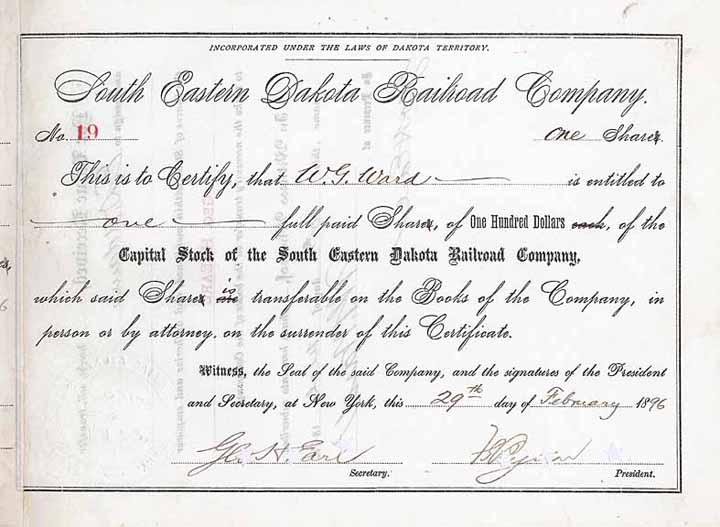 INCORPORATED UNDER THE LAWS OF DAKOTA TERRITORY.
South Eastern Dakota Railroad Company.
No. 19 one Share
This is to Certify, that W. G. Ward is entitled to
one full paid Share, of One Hundred Dollars each, of the
Capital Stock of the South Eastern Dakota Railroad Company,
which said Share is transferable on the Books of the Company, in
person or by attorney, on the surrender of this Certificate.
Witness, the Seal of the said Company, and the signatures of the President
and Secretary, at New York, this 29th day of February 1896
Geo. H. Earl
Secretary. President.